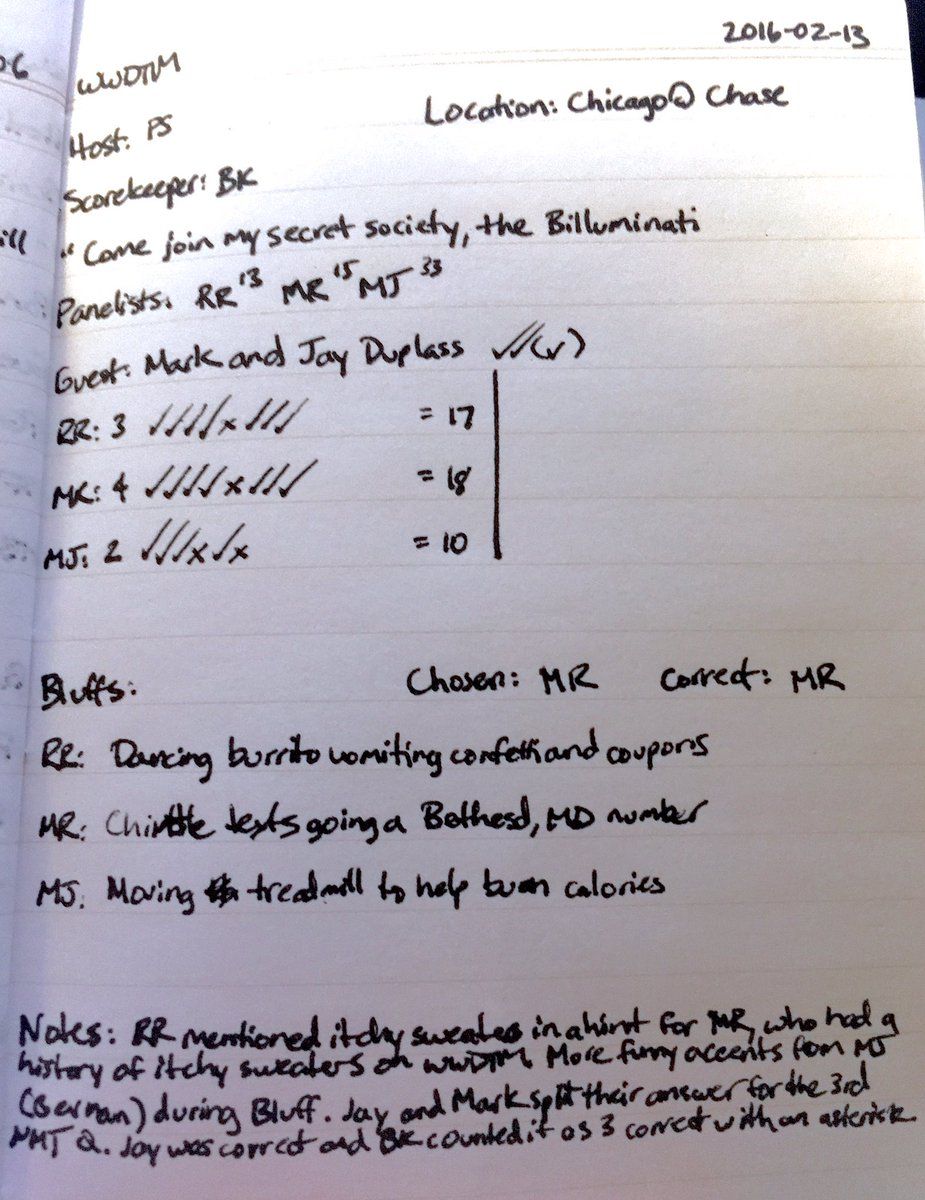 2016-02-13
06
WWDTM
Location: Chicago @ Chase
Host: PS
Scorekeeper: BK
ill
" Come join my secret society, the Billuminati
Panelists: RR 13 MR 15 MJ 33
Guest: Mark and Jay Duplass ✓✓(✓)
RR: 3 ✓✓✓✓x✓✓✓ = 17
MR: 4 ✓✓✓✓x✓✓✓ = 18
MJ: 2 ✓✓✓x✓x = 10
Bluffs: Chosen: MR Correct: MR
RR: Dancing burrito vomiting confetti and coupons
MR: Chipotle texts going a Bethesd, MD number
MJ: Moving treadmill to help burn calories
Notes: RR mentioned itchy sweaters in a hint for MR, who had a
history of itchy sweaters on WWDTM. More funny accents from MJ
(German) during Bluff. Jay and Mark split their answer for the 3rd
NMJ Q. Jay was correct and BK counted it as 3 correct with an asterisk.